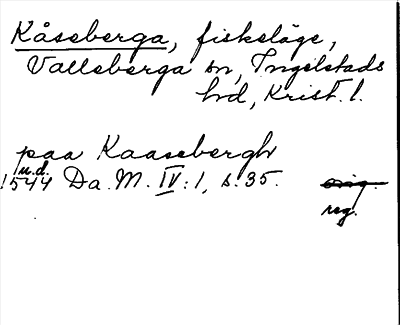 Kåseberga, fiskeläge,
Valleberga sn, Ingelstads
hd, Krist. l.
paa Kaasebergh
u.d.
1544 Da. M. IV: 1, s. 35. orig.
reg.